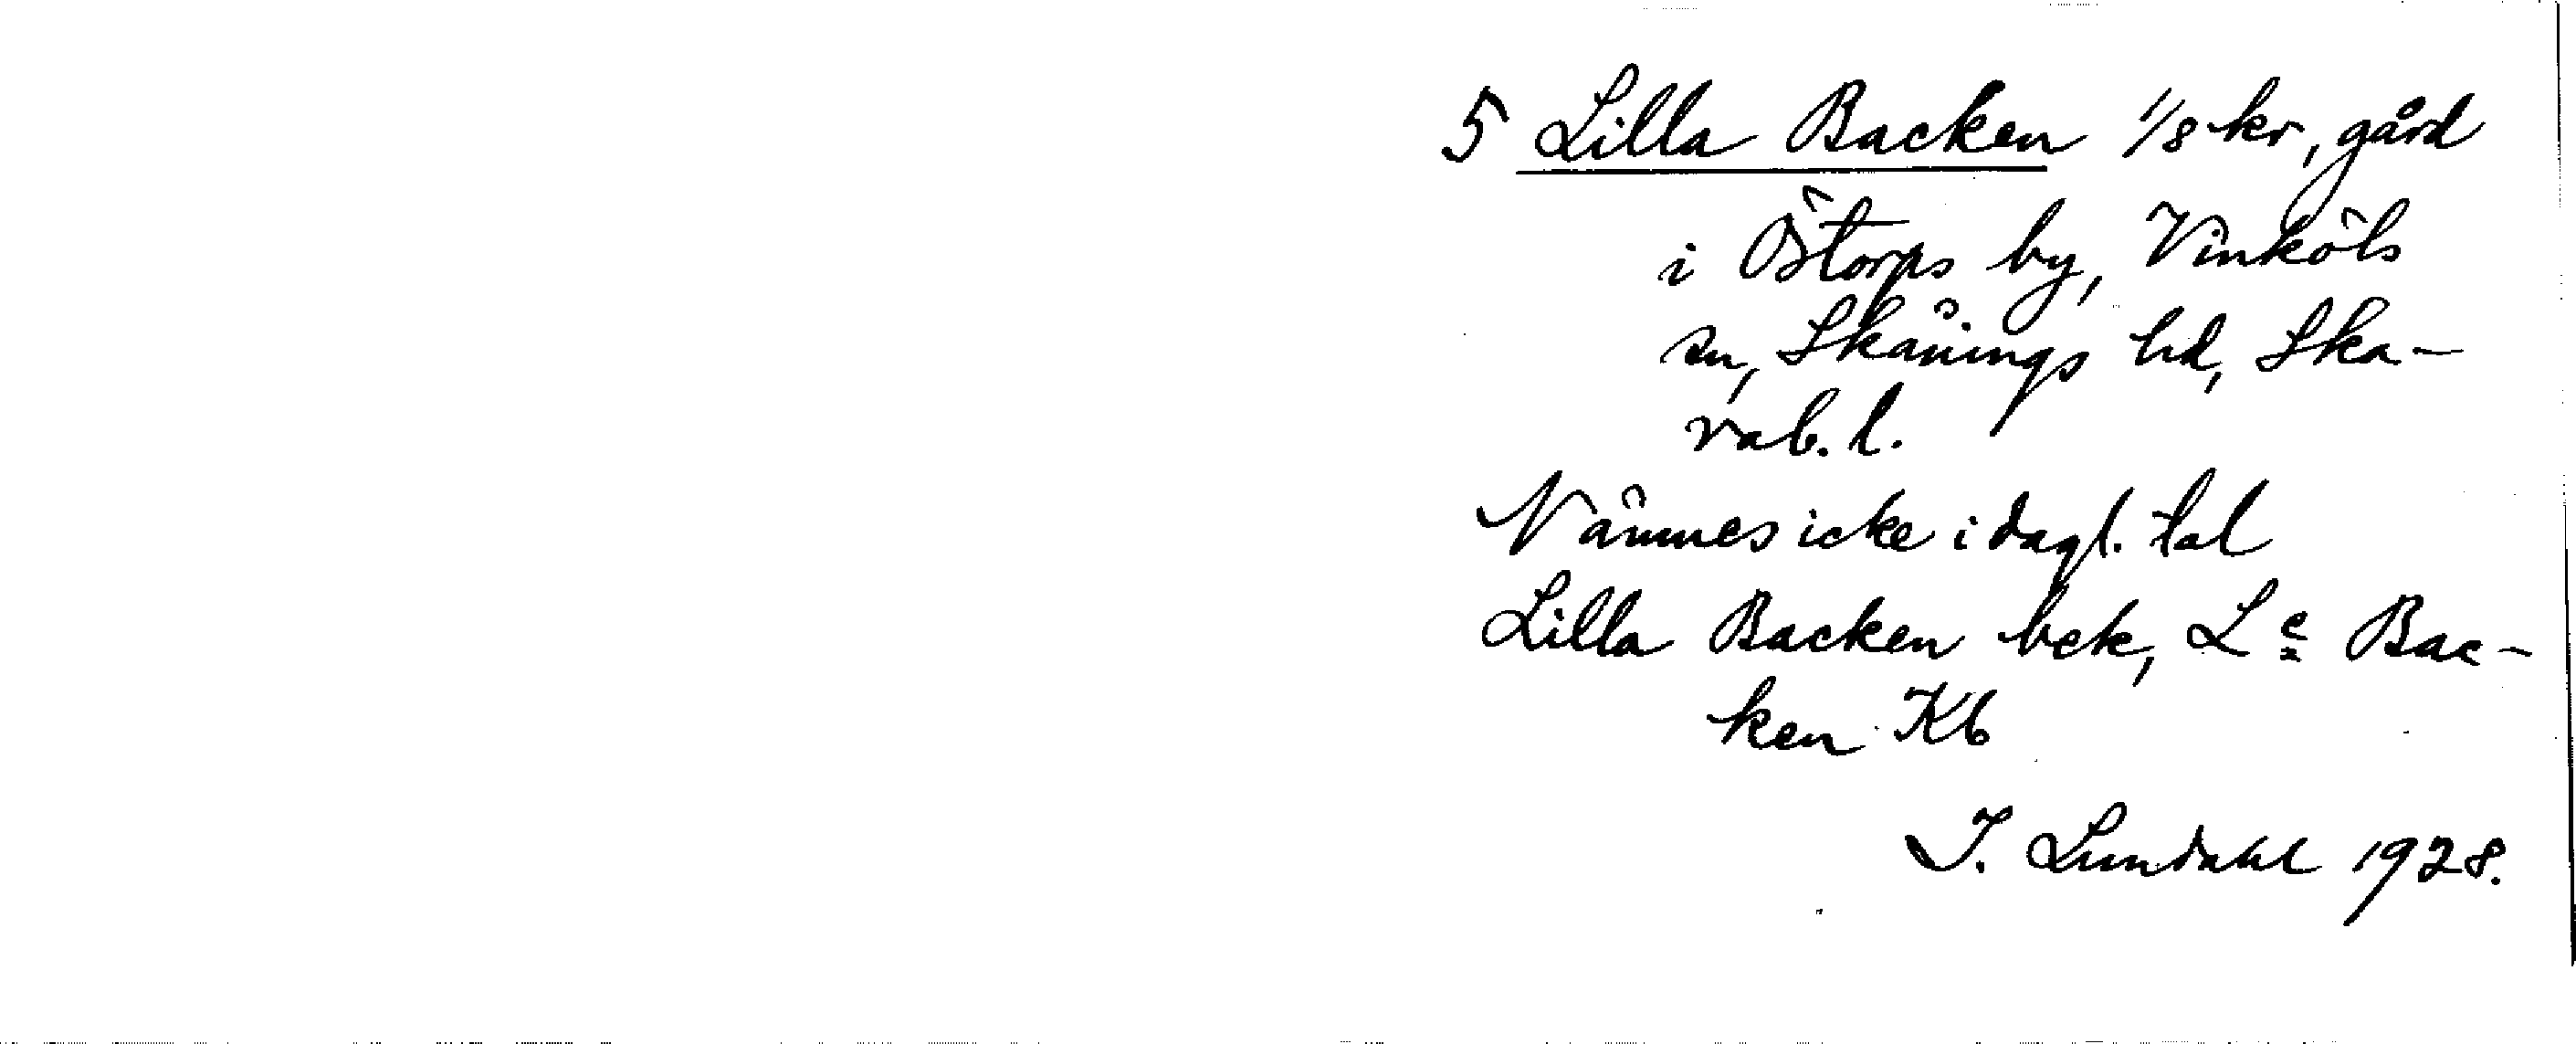 5 Lilla Backen 1/8 kr, gård
i Östorps by, Vinköls
sn, Skånings hd, Ska-
rab. l.
Nämnes icke i dagl. tal
Lilla Backen bek, Le Bac-
ken Kb
I. Lundahl 1928.